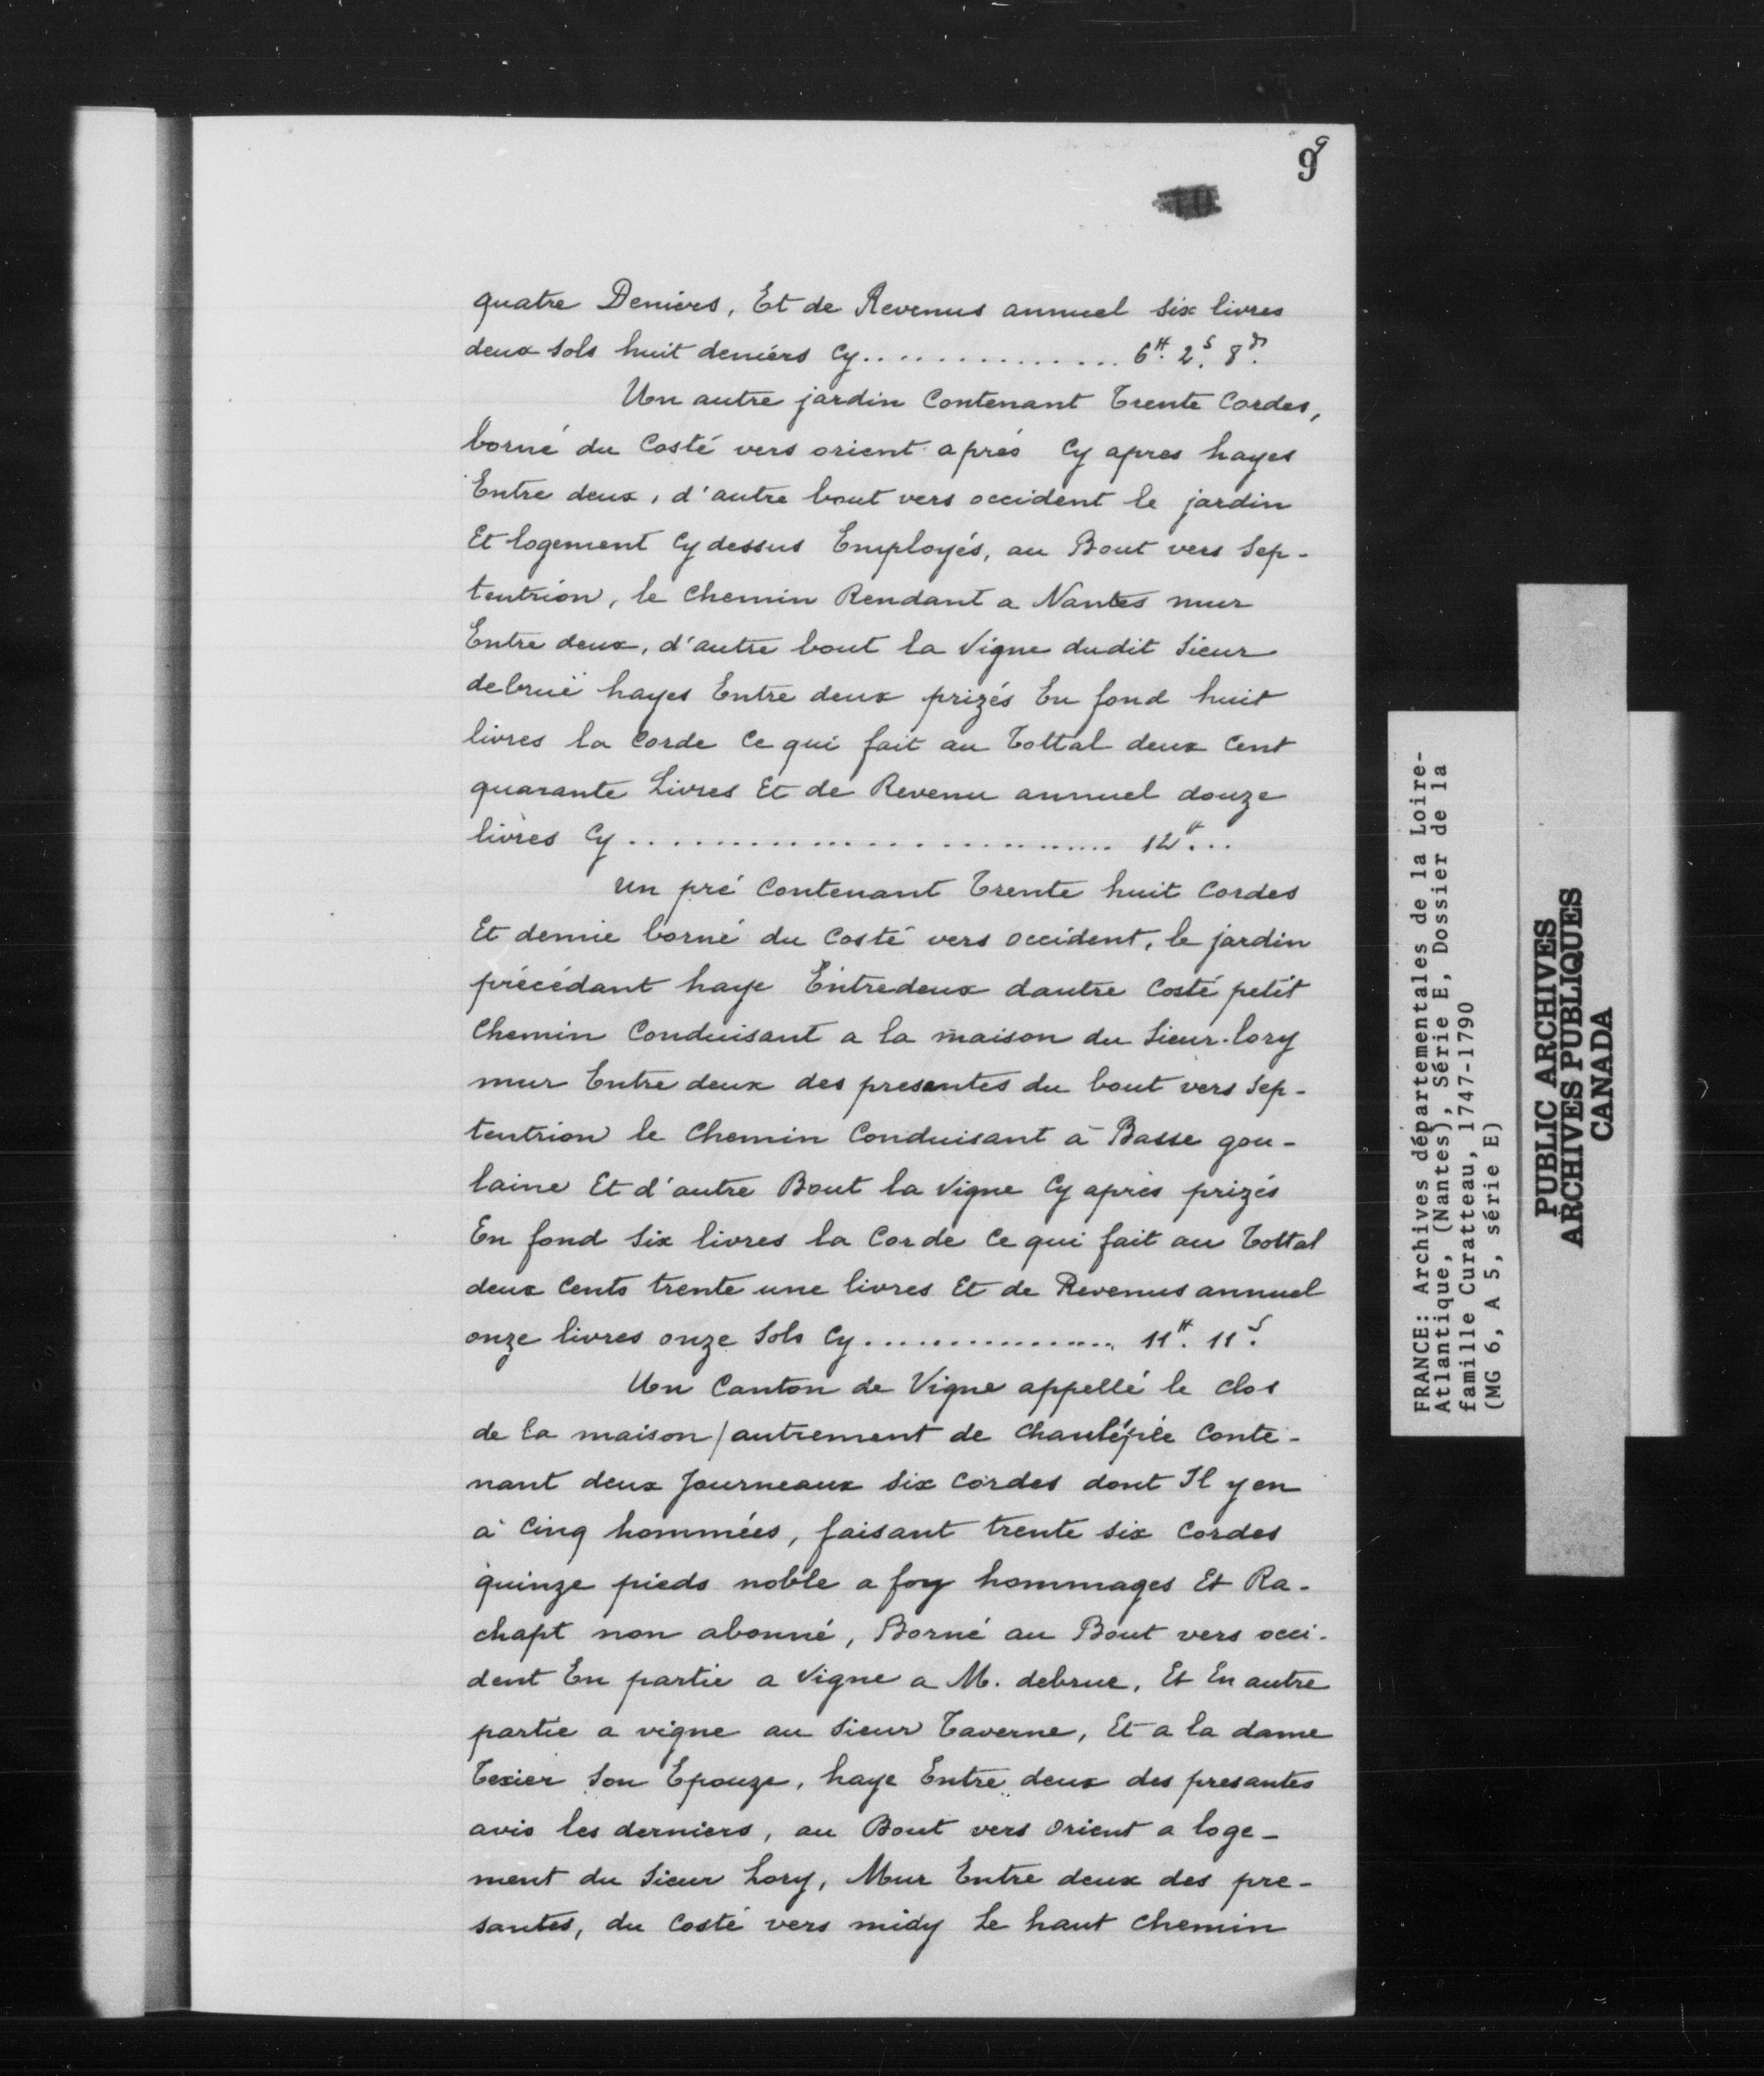 9
9
10
quatre Deniers, Et de Revenus annuel six livres
deux sols huit deniérs Cy............... 6tt. 2.s 8.d
Un autre jardin Contenant Trente Cordes,
borné du Costé vers orient aprés Cy apres hayes
Entre deux, d'autre bout vers occident le jardin
Et logement Cy dessus Employés, au Bout vers Sep-
tentrion, le Chemin Rendant a Nantes mur
Entre deux, d'autre bout la Vigne dudit Sieur
debrué hayes Entre deux prizés En fond huit
livres la Corde Ce qui fait au Tottal deux Cent
quarante Livres Et de Revenu annuel douze
livres Cy............................ 12tt...
Un pré Contenant Trente huit Cordes
Et demie borné du Costé vers occident, le jardin
précédant haye Entredeux dautre Costé petit
Chemin Conduisant a la maison du Sieur Lory
mur Entre deux des presentes du bout vers Sep-
tentrion le Chemin Conduisant à Basse gou-
laine Et d'autre Bout la Vigne Cy aprés prizés
En fond Six livres la Corde Ce qui fait au Tottal
deux Cents trente une livres Et de Revenus annuel
onze livres onze Sols Cy................ 11tt. 11.s
Un Canton de Vigne appellé le clos
de la maison / autrement de Conte-
nant deux Journeaux Six Cordes dont Il y en
à Cinq hommées, faisant trente six Cordes
quinze pieds noble a foy hommages Et Ra-
chapt non abonné, Borné au Bout vers occi-
dent En partie a Vigne a M. debrue, Et En autre
partie a vigne au Sieur Taverne, Et a la dame
Texier Son Epouze, haye Entre deux des presantes
avis les derniers, au Bout vers Orient a loge-
ment du Sieur Lory, Mur Entre deux des pre-
santes, du Costé vers midy Le haut Chemin
FRANCE: Archives départementales de la Loire-
Atlantique, (Nantes), Série E, Dossier de la
famille Curatteau, 1747-1790
(MG 6, A 5, série E)
PUBLIC ARCHIVES
ARCHIVES PUBLIQUES
CANADA